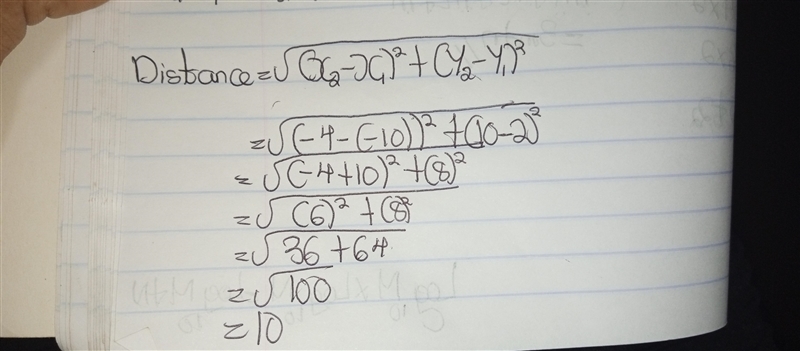 Distance = √(x₂-x₁)² + (y₂-y₁)²
= √(-4-(-10))² + (10-2)²
= √(-4+10)² + (8)²
= √(6)² + (8)²
= √36 + 64
= √100
= 10